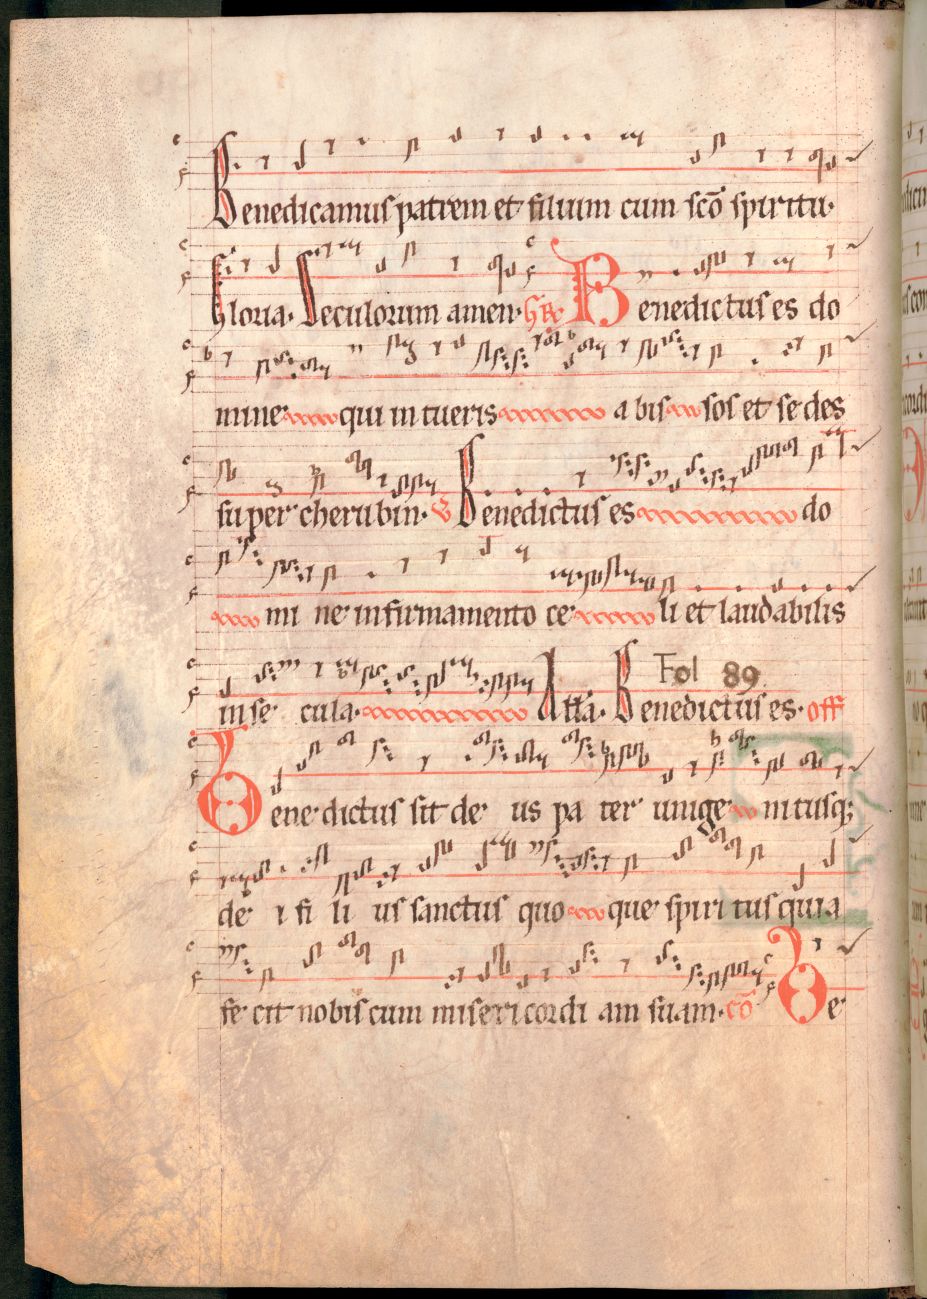 Benedicamus patrem et filium cum sc̄o spiritu·
Gloria· Seculorum amen· Benedictus es do
mine qui intueris abissos et sedes
super cherubin· Benedictus es do
mine in firmamento celi et laudabilis
in secula· Alła· Benedictus es· off
Fol 89
Benedictus sit deus pater unigenitusq;
dei filius sanctus quoque spiritus quia
fecit nobiscum misericordiam suam· co̅ Be